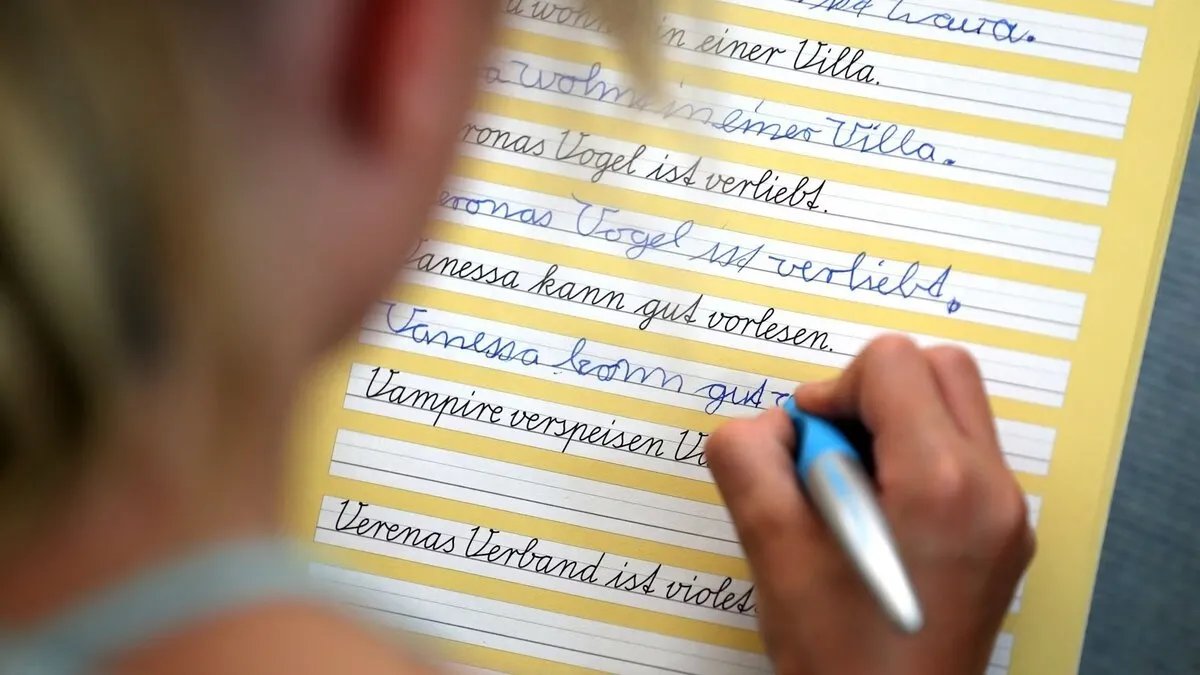 in einer Villa.
wohnt in einer Villa.
Vogel ist verliebt.
Vogel ist verliebt.
Vanessa kann gut vorlesen.
Vanessa kann gut
Vampire verspeisen
Verenas Verband ist violett.